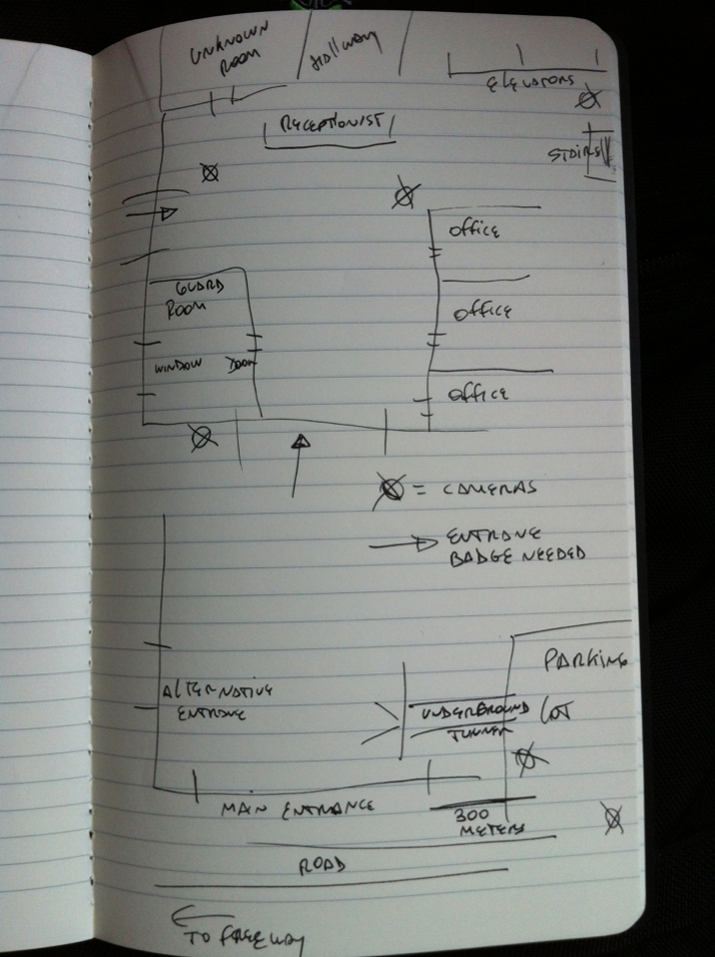 UNKNOWN
ROOM
HAllway
ELEVATORS
RECEPTIONIST
STAIRS
OFFiCE
GUARD
ROOM
OFFiCE
WINDOW
DOOR
OFFiCE
= CAMERAS
ENTRANCE
BADGE NEEDED
PARKING
LOT
AlTERNATIVE
ENTRANCE
UNDERGROUND
TUNNEL
MAIN ENTRANCE
300
METERS
ROAD
TO FREEWAY